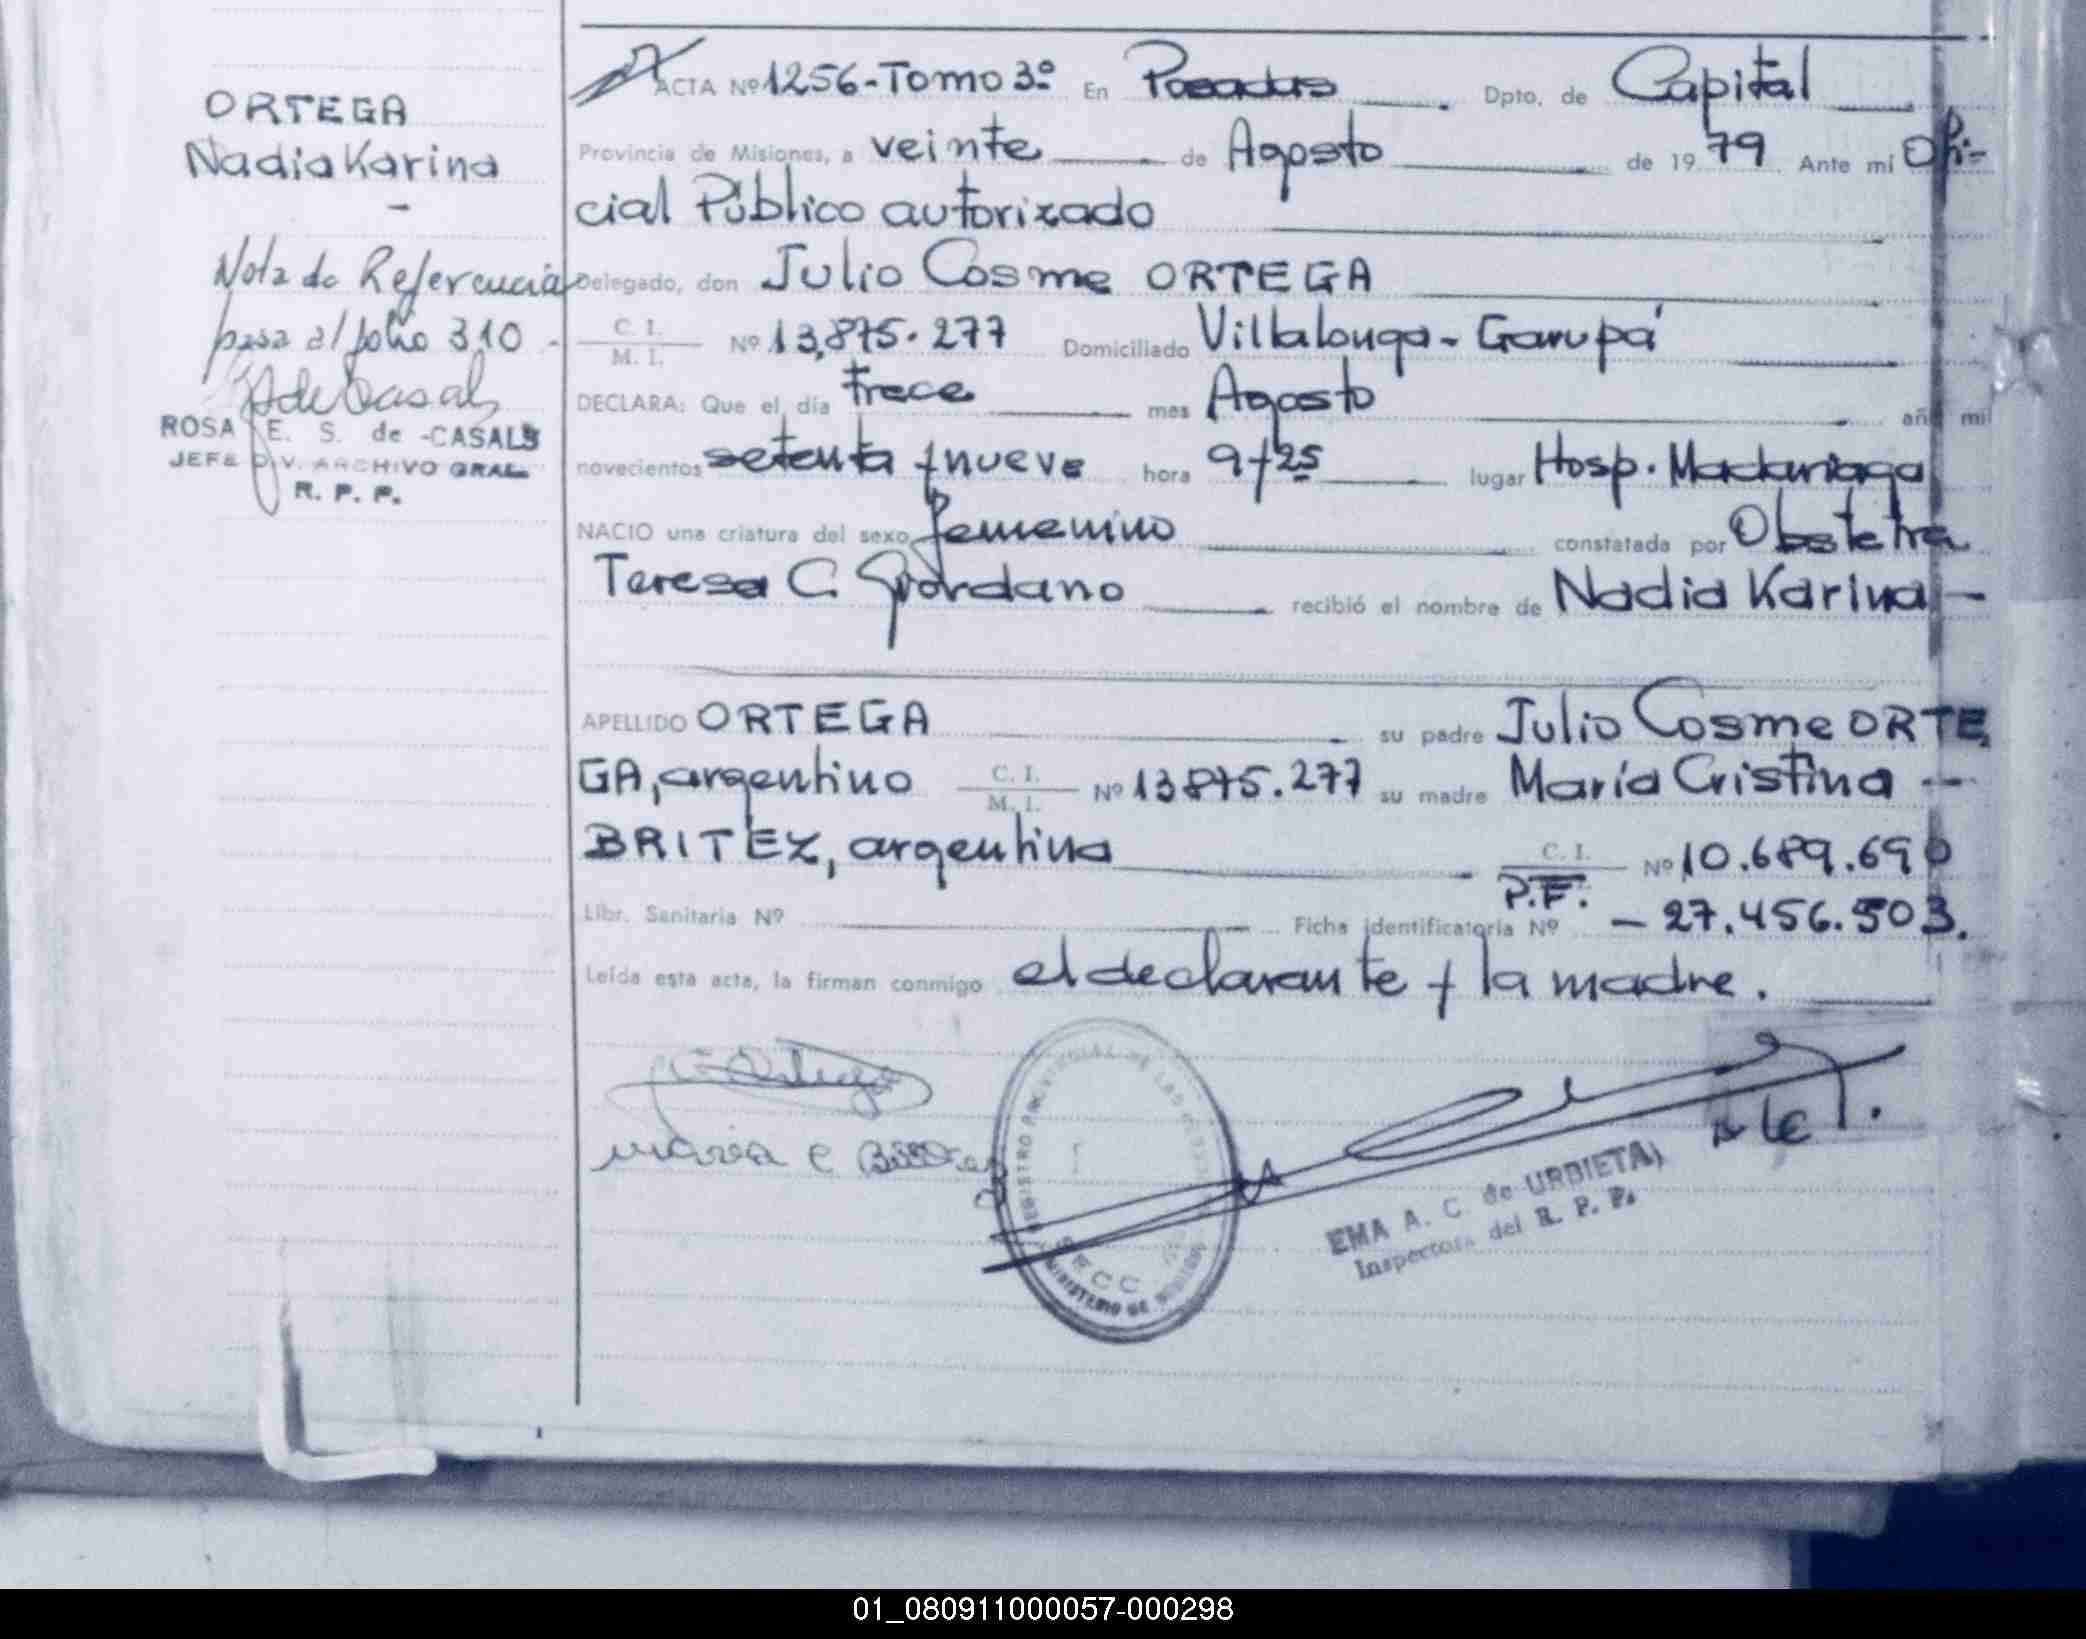 ORTEGA
Nadia Karina
-
Nota de Referencia
pasa al folio 310 -
R de Casals
ROSA E. S. de CASALS
JEFE DIV. ARCHIVO GRAL.
R. P. P.
ACTA Nº 1256-Tomo 3º En Posadas Dpto. de Capital
Provincia de Misiones, a veinte de Agosto de 1979 Ante mi Ofi-
cial Público autorizado
Delegado, don Julio Cosme ORTEGA
C. I. / M. I. Nº 13,875.277 Domiciliado Villalonga - Garupá
DECLARA: Que el día trece mes Agosto año mil
novecientos setenta y nueve hora 9 y 25 lugar Hosp. Madariaga
NACIO una criatura del sexo femenino constatada por Obstetra
Teresa C. Giordano recibió el nombre de Nadia Karina -
APELLIDO ORTEGA su padre Julio Cosme ORTE
GA, argentino C. I. / M. I. Nº 13875.277 su madre María Cristina -
BRITEZ, argentina C. I. P.F. Nº 10.689.690
Libr. Sanitaria Nº Ficha identificatoria Nº - 27.456.503.
Leída esta acta, la firman conmigo el declarante y la madre.
Maria C
REGISTRO PROVINCIAL DE LAS PERSONAS
SECC
MINISTERIO DE
EMA A. C. de URBIETA
Inspectora del R. P. P.
01_080911000057-000298